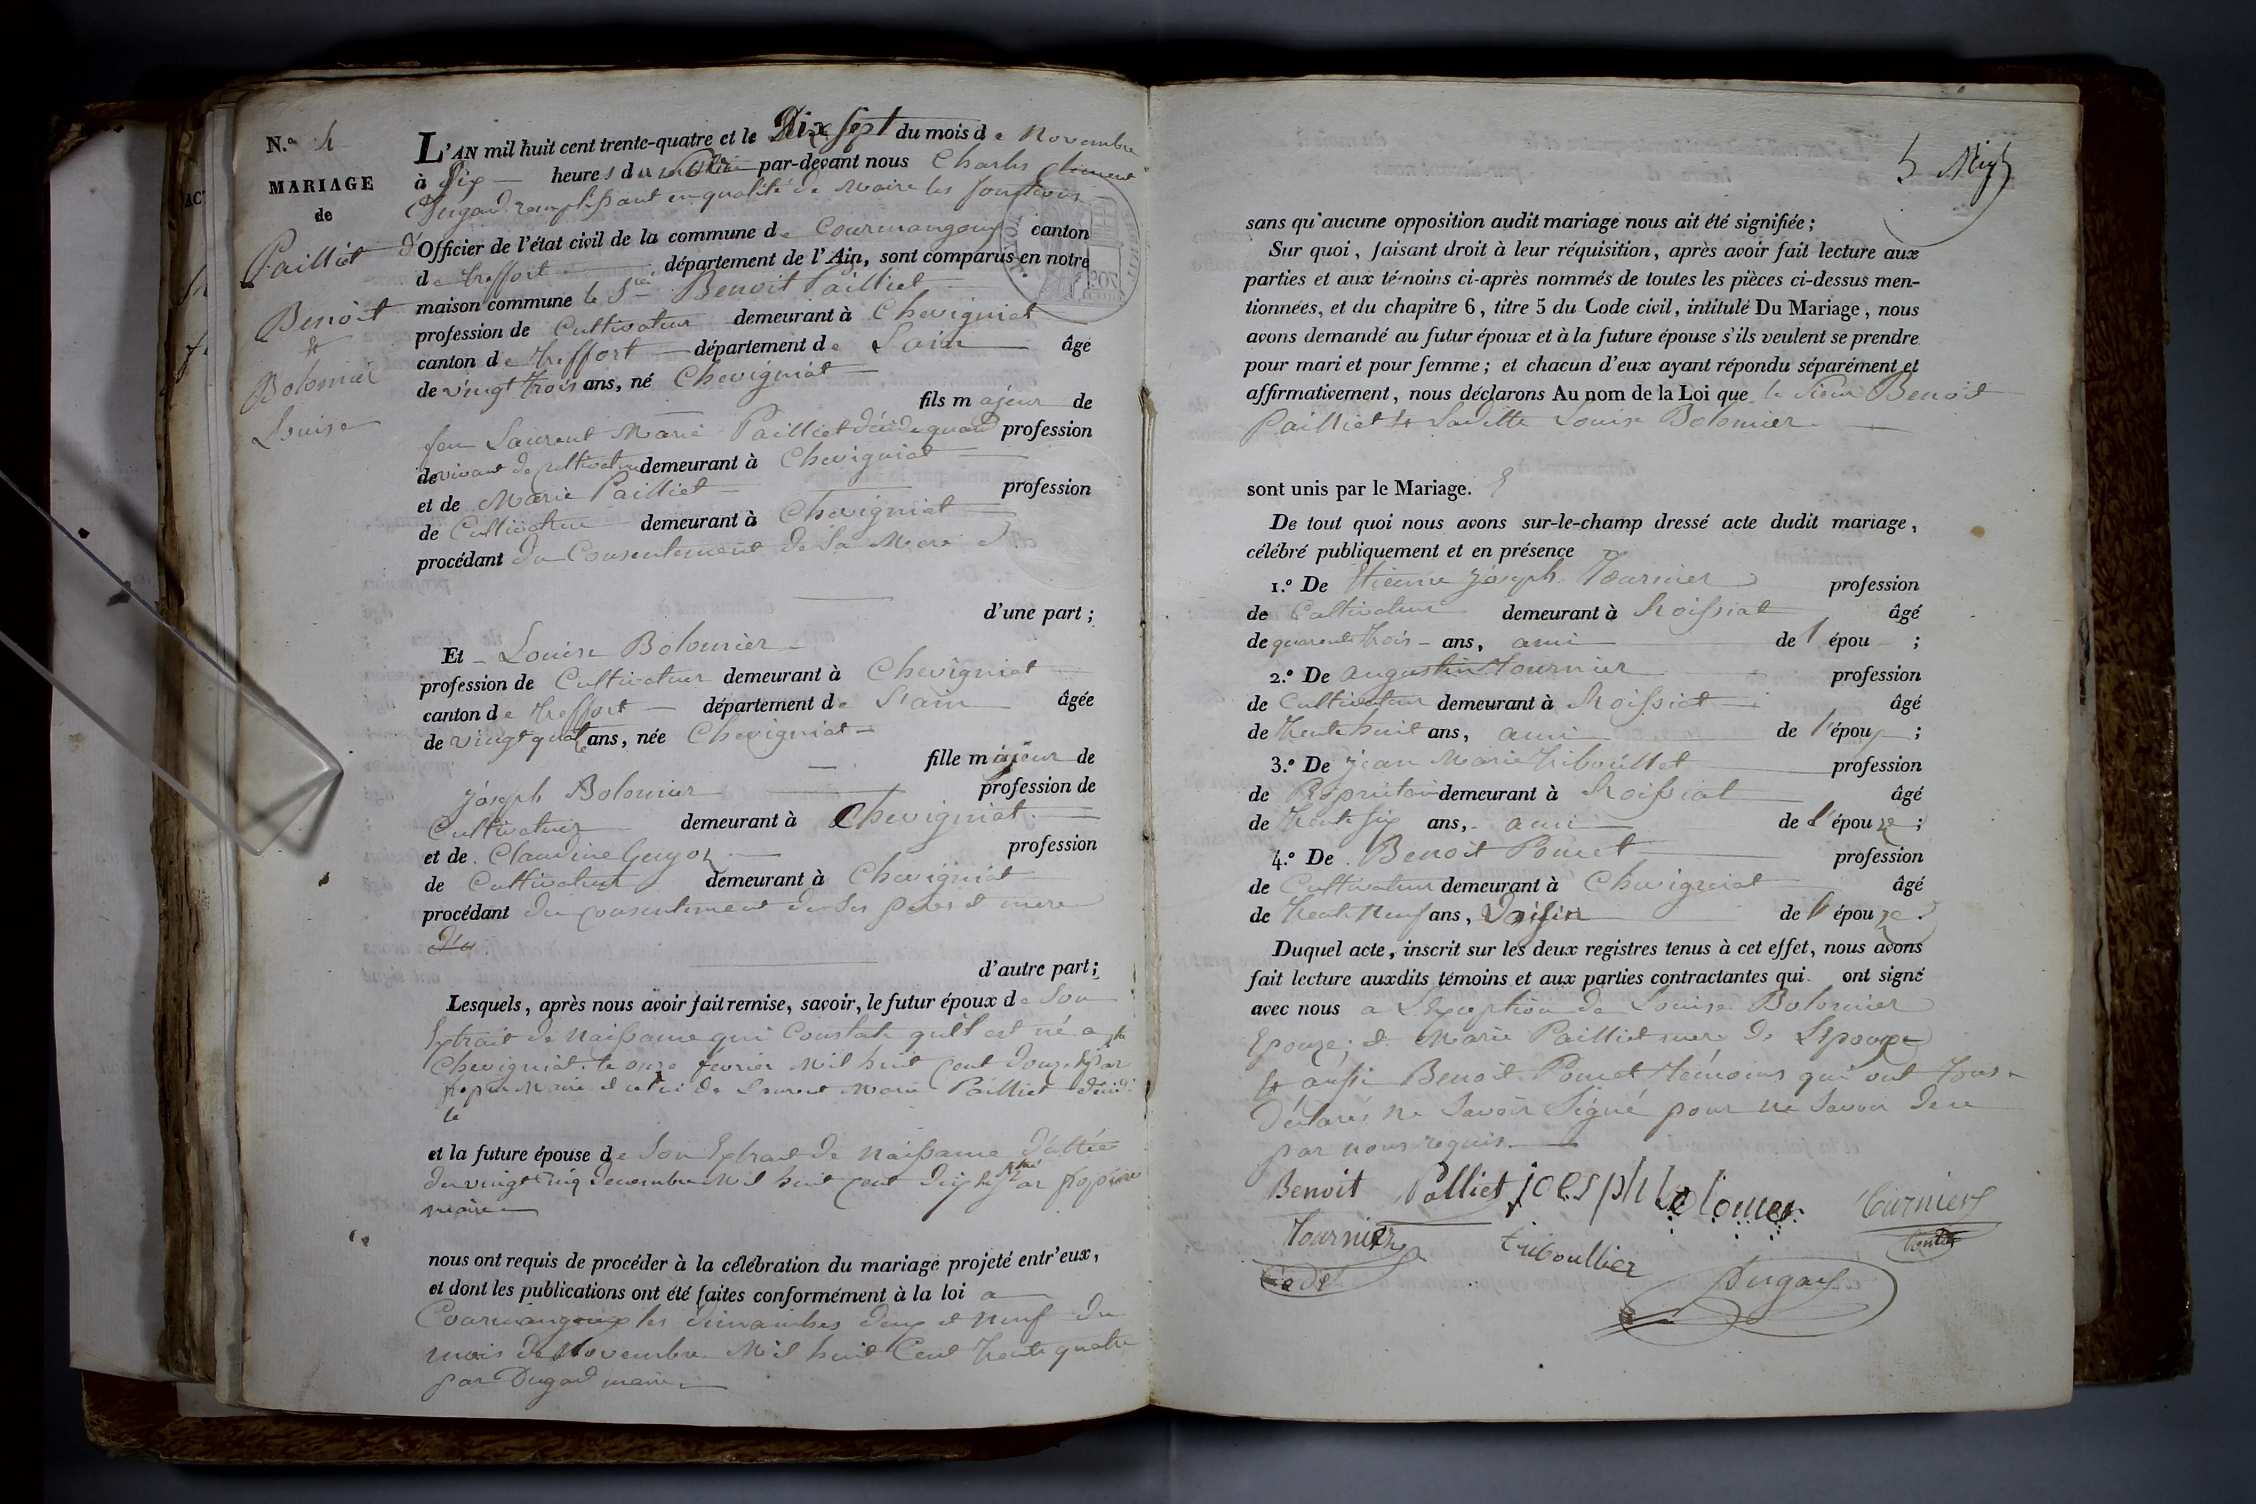 N.o 4
MARIAGE
de
Pailliet
Benoit
&
Bolomier
Louise
L'AN mil huit cent trente-quatre et le Dix sept du mois de Novembre
à Dix heures du par-devant nous Charles Clément
Dugard remplissant en qualité de Maire les fonctions
d'Officier de l'état civil de la commune de Courmangoux canton
de Treffort département de l'Ain, sont comparus en notre
maison commune le Sieur Benoit Pailliet
profession de Cultivateur demeurant à Chevigniat
canton de Treffort département de L'ain âgé
de vingt trois ans, né Chevigniat
fils majeur de
feu Laurent Marie Pailliet décédé quand profession
de vivant de cultivateur demeurant à Chevigniat
et de Marie Pailliet profession
de Cultivateur demeurant à Chevigniat
procédant du Consentement de Sa Mere
d'une part ;
Et Louise Bolomier
profession de Cultivateur demeurant à Chevigniat
canton de Treffort département de L'ain âgée
de vingt quat ans, née Chevigniat
fille majeur de
joseph Bolomier profession de
Cultivateur demeurant à Chevigniat
et de Claudine Guyon profession
de Cultivateur demeurant à Chevigniat
procédant du consentement de Ses peres et mere
d'autre part ;
Lesquels, après nous avoir fait remise, savoir, le futur époux de Son
Extrait de Naissance qui Constate qu'il est né a
Chevigniat le onze fevrier Mil huit Cent douze par
maire et celui de Laurent Marie Pailliet
le
et la future épouse de Son Extrait de Naissance dattée
du vingt cinq Decembre Mil huit Cent dix par
maire
nous ont requis de procéder à la célébration du mariage projeté entr'eux,
et dont les publications ont été faites conformément à la loi a
Courmangoux les dimanches deux et neuf du
mois de Novembre Mil huit Cent trente quatre
par Dugard maire
5
sans qu'aucune opposition audit mariage nous ait été signifiée ;
Sur quoi, faisant droit à leur réquisition, après avoir fait lecture aux
parties et aux témoins ci-après nommés de toutes les pièces ci-dessus men-
tionnées, et du chapitre 6, titre 5 du Code civil, intitulé Du Mariage, nous
avons demandé au futur époux et à la future épouse s'ils veulent se prendre
pour mari et pour femme ; et chacun d'eux ayant répondu séparément et
affirmativement, nous déclarons Au nom de la Loi que le Sieur Benoit
Pailliet & Laditte Louise Bolomier
sont unis par le Mariage.
De tout quoi nous avons sur-le-champ dressé acte dudit mariage,
célébré publiquement et en présence
1.o De Etienne joseph Tournier profession
de Cultivateur demeurant à Roissiat âgé
de quarente trois ans, ami de l'épou ;
2.o De augustin Tournier profession
de Cultivateur demeurant à Roissiat âgé
de trente huit ans, ami de l'époux ;
3.o De jean Marie Tiboullet profession
de Propriétaire demeurant à Roissiat âgé
de trente six ans, ami de l'épouze ;
4.o De Benoit Poncet profession
de Cultivateur demeurant à Chevigniat âgé
de trente neuf ans, Voisin de l'épouze.
Duquel acte, inscrit sur les deux registres tenus à cet effet, nous avons
fait lecture auxdits témoins et aux parties contractantes qui ont signé
avec nous a L'Exception de Louise Bolomier
Epouze; et Marie Pailliet mere de L'Epoux
& aussi Benoit Poncet témoins qui ont tous
Déclarés ne Savoir Signé pour ne Savoir de ce
par nous requis.
Benoit Palliet joesph Bolomer Turnier
Tournier triboullier
Cadet
Dugard